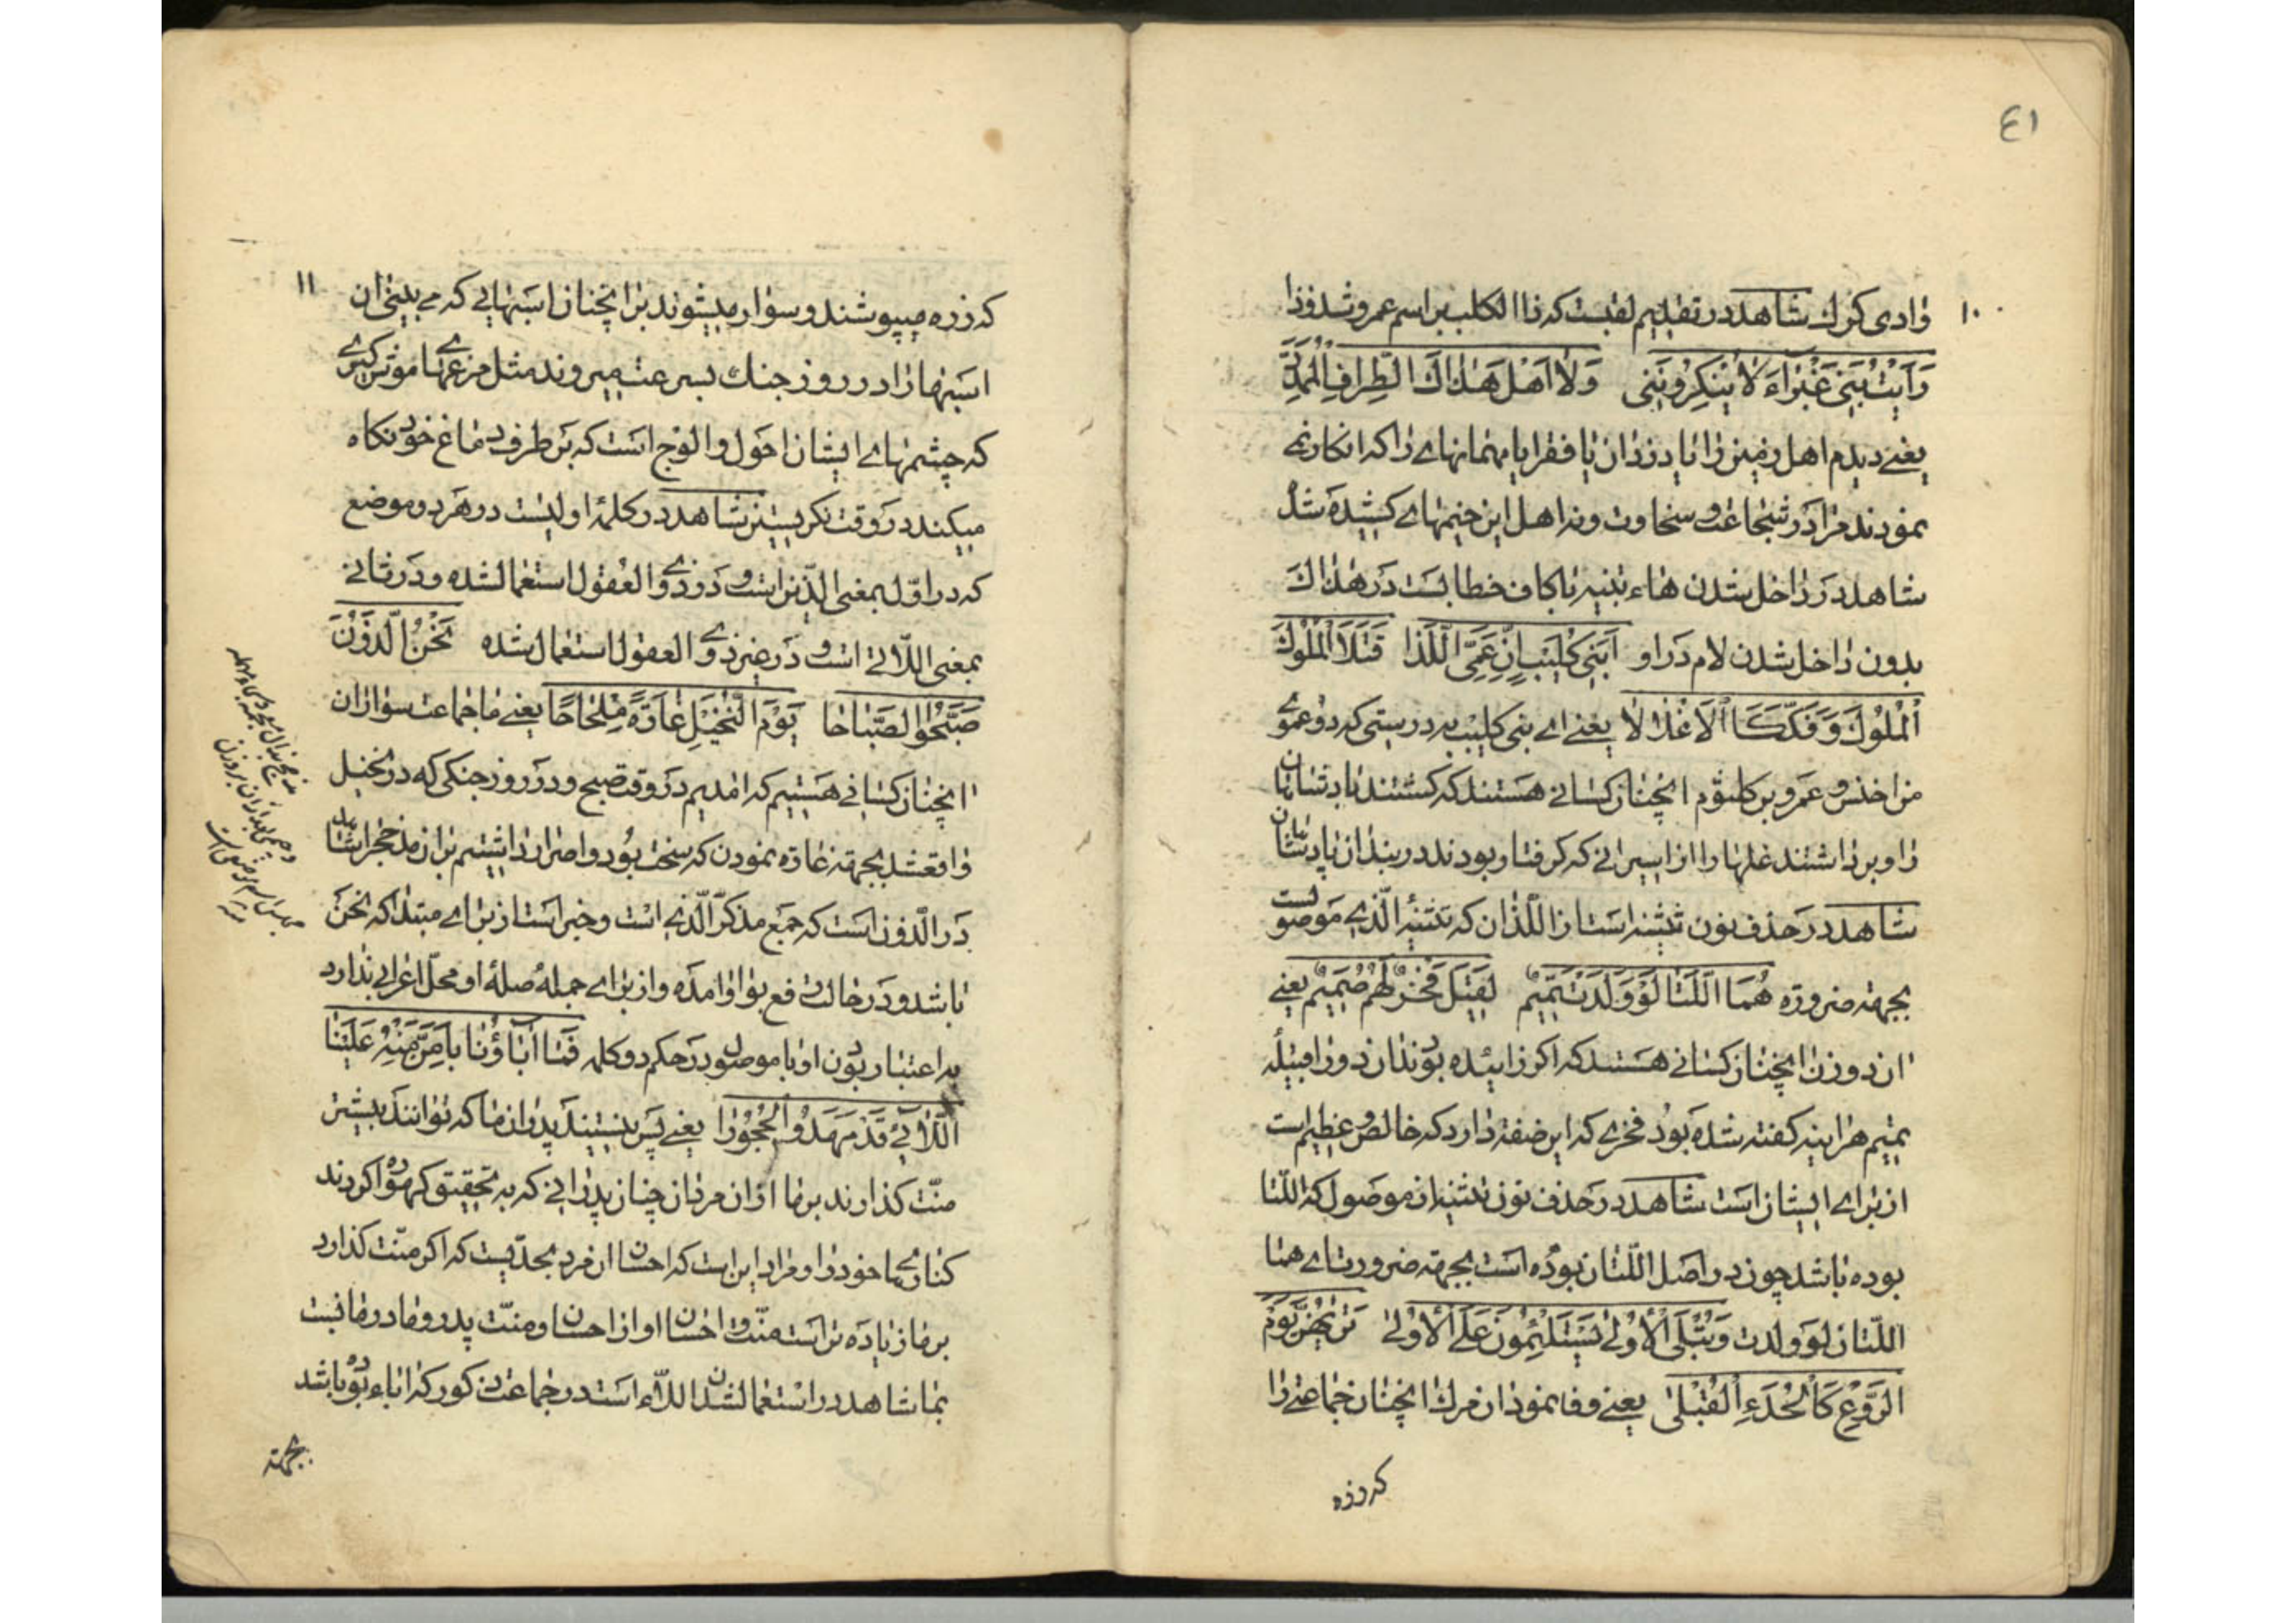 ٤١
١٠
وادی کرك شاهد در تقدیم لقبست که ذا الکلب بر اسم عمرو شد وذا
رَاَیْتُ بَنی غَبْرٰاءَ لا یُنْکِرُونَنی وَلا اَهْلُ هٰذاكَ الطِّرافِ الْمُمَدَّدِ
یعنے دیدم اهل زمین را یا دزدان یا فقرا یا مهمانهاے را که انکار نمے
نمودند مرا در شجاعت و سخاوت ونه اهل این خیمهاے کشیده شدۀ
شاهد در داخل شدن هاء تنبیه با کاف خطابست در هذاك
بدون داخل شدن لام در او اَبَنی کُلَیْبٍ اِنَّ عَمَّیَّ اللَّذا قَتَلاَ الْمُلُوكَ
الْمُلُوكَ وَفَکَّکَا الْاَغْلالا یعنے اے بنی کلیب به درستی که دو عموے
من اخنس و عمرو بن کلثوم انچنان کسانے هستند که کشتند پادشاهان
را و برداشتند غلها را از اسیرانے که گرفتار بودند در بند از پادشاهان
شاهد در حذف نون تثنیه است از اللّذان که تثنیۀ الّذے موصولست
بجهته ضروره هُمَا اللَّتا لَوْ وَلَدَتْ تَمیمٌ لَقیلَ فَخْرٌ لَهُمْ صَمیمٌ یعنے
ان دو زن انچنان کسانے هستند که اکر زائیده بودند ان دو را قبیلۀ
تمیم هراینه کفته شده بود فخرے که این صفته دارد که خالص و عظیم است
از براے ایشان است شاهد در حذف نون تثنیه از موصول که اللّتا
بوده باشد چون در اصل اللّتان بوده است بجهته ضرورت اے هما
اللّتان لو ولدت وَتُبْلَی الْاُولٰی یَسْتَلْئِمُونَ عَلَی الْاُولٰی تَرٰیهُنَّ یَوْمَ
الرَّوْعِ کَالْحِدَءِ الْقُبْلِ یعنے وفا نمود ان مرك انچنان جماعتے را
که زره
١١
که زره میپوشند و سوار میشوند بر انچنان اسبهایے که مے بینے ان
اسبها را در روز جنك بسرعت میروند مثل مرغهاے موش کیرے
که چشمهاے ایشان احول و الوج است که بر طرف دماغ خود نکاه
میکند در وقت نکریستن شاهد در کلمۀ اولیست در هر دو موضع
که در اوّل بمعنی الّذین است و در ذوے العقول استعمالشده و در ثانے
بمعنی اللّاتے است و در غیر ذوے العقول استعمال شده نَحْنُ الَّذُونَ
صَبَّحُوا الصَّباحا یَوْمَ النُّخَیْلِ غارَةً مِلْحاحًا یعنے ما جماعت سواران
انچنان کسانے هستیم که امدیم در وقت صبح و در روز جنکی که در نخیل
واقعشد بجهته غاره نمودن که سخت بود و اصرار داشتیم بر ان مذحج را شاهد
در الّذون است که جمع مذکّر الّذے است و خبر است از براے مبتدا که نحن
باشد و در حالت رفع بواو امده و از براے جمله صلۀ او محلّ اعرابے ندارد
به اعتبار بودن او با موصول در حکم دو کلمه فَما اٰباؤُنا بِاَمَنَّ مِنْهُ عَلَیْنَا
اللّاۤءِ قَدْ مَهَدُوا الْحُجُورا یعنے پس نیستند پدران ما که توانند بیشتر
منّت کذارند بر ما از ان مرد ان چنان پدرانے که به تحقیق کهواره کردند
کنارهاے خود را و مراد این است که احسان ان فرد بحدّیست که اکر منّت کذارد
بر ما زیاده تر است منّت و احسان او از احسان و منّت پدر و مادر ما نیست
بما شاهد در استعمال شدن اللّاء است در جماعت ذکور که اباء بوده باشد
بجهته